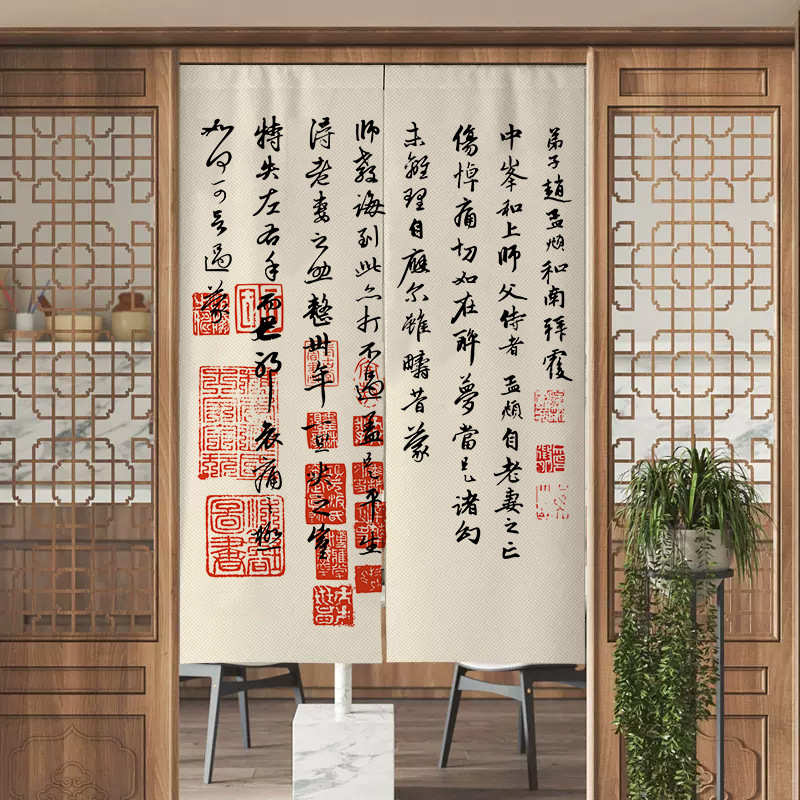 弟子趙孟頫和南拜覆
中峯和上師父侍者孟頫自老妻之亡
傷悼痛切如在醉夢當是諸幻
未離理自應尔雖疇昔蒙
師教誨到此亦打不過盖是平生
得老妻之助整卅年一旦失之豈
特失左右手而已耶哀痛之極
如何可言過蒙